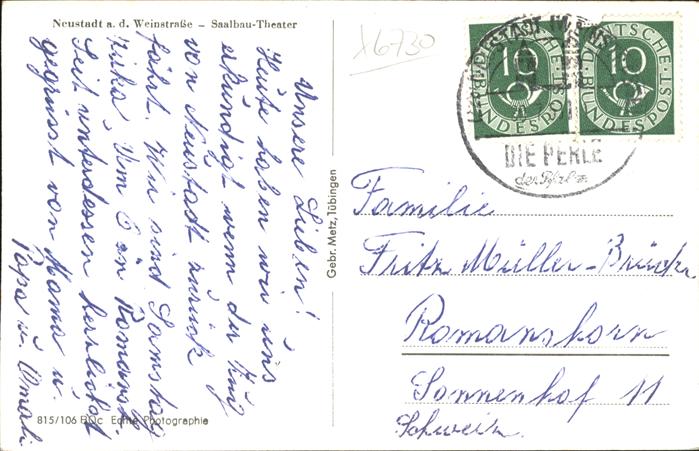 Neustadt a. d. Weinstraße – Saalbau-Theater
Unsere Lieben!
Heute haben wir uns
erkündigt wenn der Zug
von Neustadt zurück
fährt. Wir sind Samstag
Vom 6 in Romansh.
Seit unterdessen herzlichst
gegrüsst von Mama u.
Papa u. Omali
815/106 Echte Photographie
Gebr. Metz, Tübingen
X6730
10
DEUTSCHE
BUNDESPOST
10
DEUTSCHE
BUNDESPOST
DIE PERLE
der Pfalz
Familie
Fritz Müller-Brücker
Romanshorn
Sonnenhof 11
Schweiz.